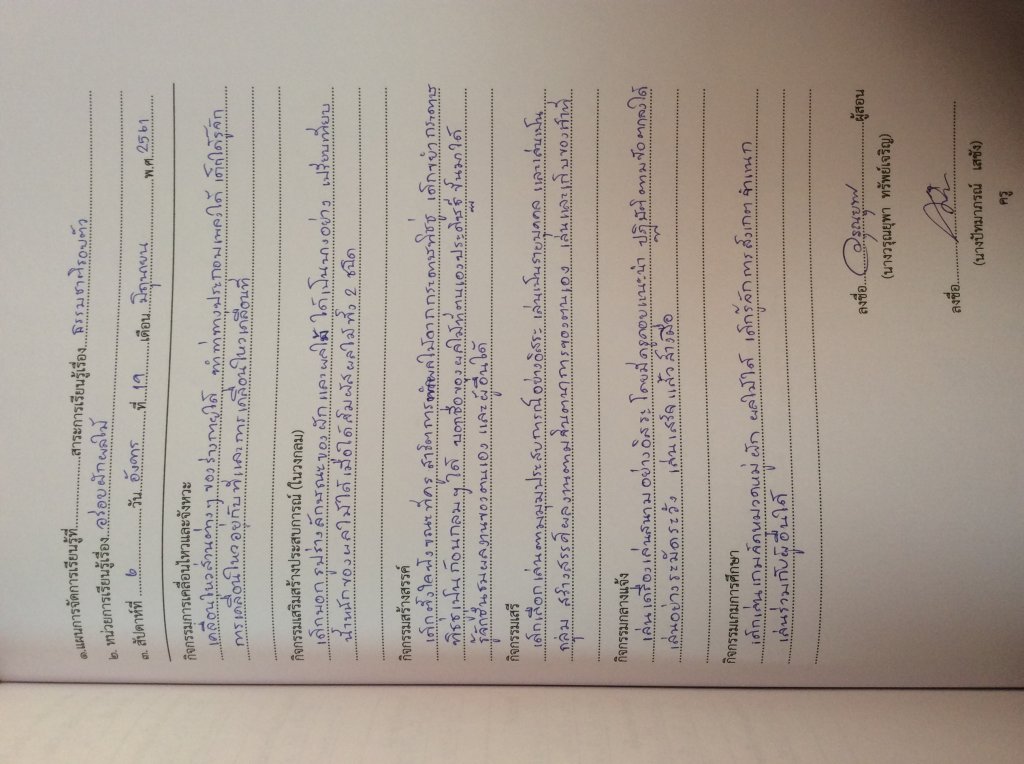 ๑.แผนการจัดการเรียนรู้ที่...............สาระการเรียนรู้เรื่อง..ธรรมชาติรอบตัว
๒. หน่วยการเรียนรู้เรื่อง..อร่อยผักผลไม้
๓. สัปดาห์ที่ ....๖.... วัน..อังคาร ที่..19......เดือน..มิถุนายน.....พ.ศ.2561
กิจกรรมการเคลื่อนไหวและจังหวะ
เคลื่อนไหวส่วนต่างๆ ของร่างกายได้ ทำท่าทางประกอบเพลงได้ เด็กได้รู้จัก
การเคลื่อนไหวอยู่กับที่และการเคลื่อนไหวเคลื่อนที่
กิจกรรมเสริมสร้างประสบการณ์ (ในวงกลม)
เด็กบอกรูปร่างลักษณะของผักและผลไม้ ได้เป็นบางอย่าง เปรียบเทียบ
น้ำหนักของผลไม้ได้เมื่อได้สัมผัสผลไม้ทั้ง 2 ชนิด
กิจกรรมสร้างสรรค์
เด็กตั้งใจฟังขณะที่ครูสาธิตการทำผลไม้จากกระดาษทิชชู เด็กขยำกระดาษ
ทิชชูเป็นก้อนกลมๆ ได้ บอกชื่อของผลไม้ที่ตนเองประดิษฐ์ขึ้นมาได้
รู้จักชื่นชมผลงานของตนเอง และผู้อื่นได้
กิจกรรมเสรี
เด็กเลือกเล่นตามมุมประสบการณ์อย่างอิสระ เล่นเป็นรายบุคคล และเล่นเป็น
กลุ่ม สร้างสรรค์ผลงานตามจินตนาการของตนเอง เล่นและเก็บของเข้าที่
กิจกรรมกลางแจ้ง
เล่นเครื่องเล่นสนามอย่างอิสระ โดยมีครูคอยแนะนำ ปฏิบัติตามข้อตกลงได้
เล่นอย่างระมัดระวัง เล่นเสร็จแล้วล้างมือ
กิจกรรมเกมการศึกษา
เด็กเล่นเกมจัดหมวดหมู่ผัก ผลไม้ได้ เด็กรู้จักการสังเกตจำแนก
เล่นร่วมกับผู้อื่นได้
ลงชื่อ...วรุณยุพา...ผู้สอน
(นางวรุณยุพา ทรัพย์เจริญ)
ลงชื่อ..............................
(นางปัทมาภรณ์ เสชัง)
ครู